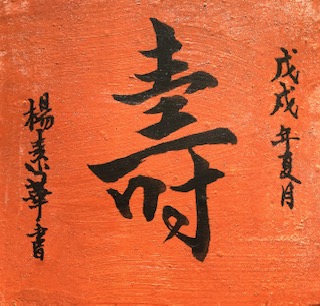 戊戌年夏月
壽
楊素華書